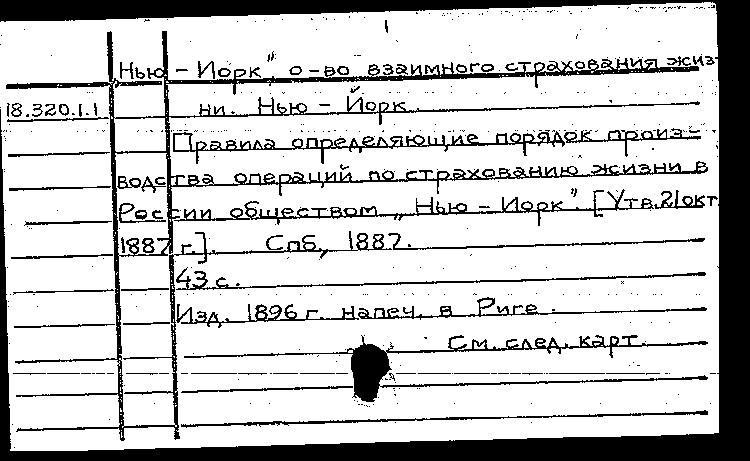 Нью-Иорк", о-во взаимного страхования жиз-
18.320.1.1 ни. Нью-Йорк.
Правила определяющие порядок произ-
водства операций по страхованию жизни в
России обществом „Нью-Иорк". [Утв. 21 окт.
1887 г.]. Спб., 1887.
43 с.
Изд. 1896 г. напеч. в Риге.
См. след. карт.